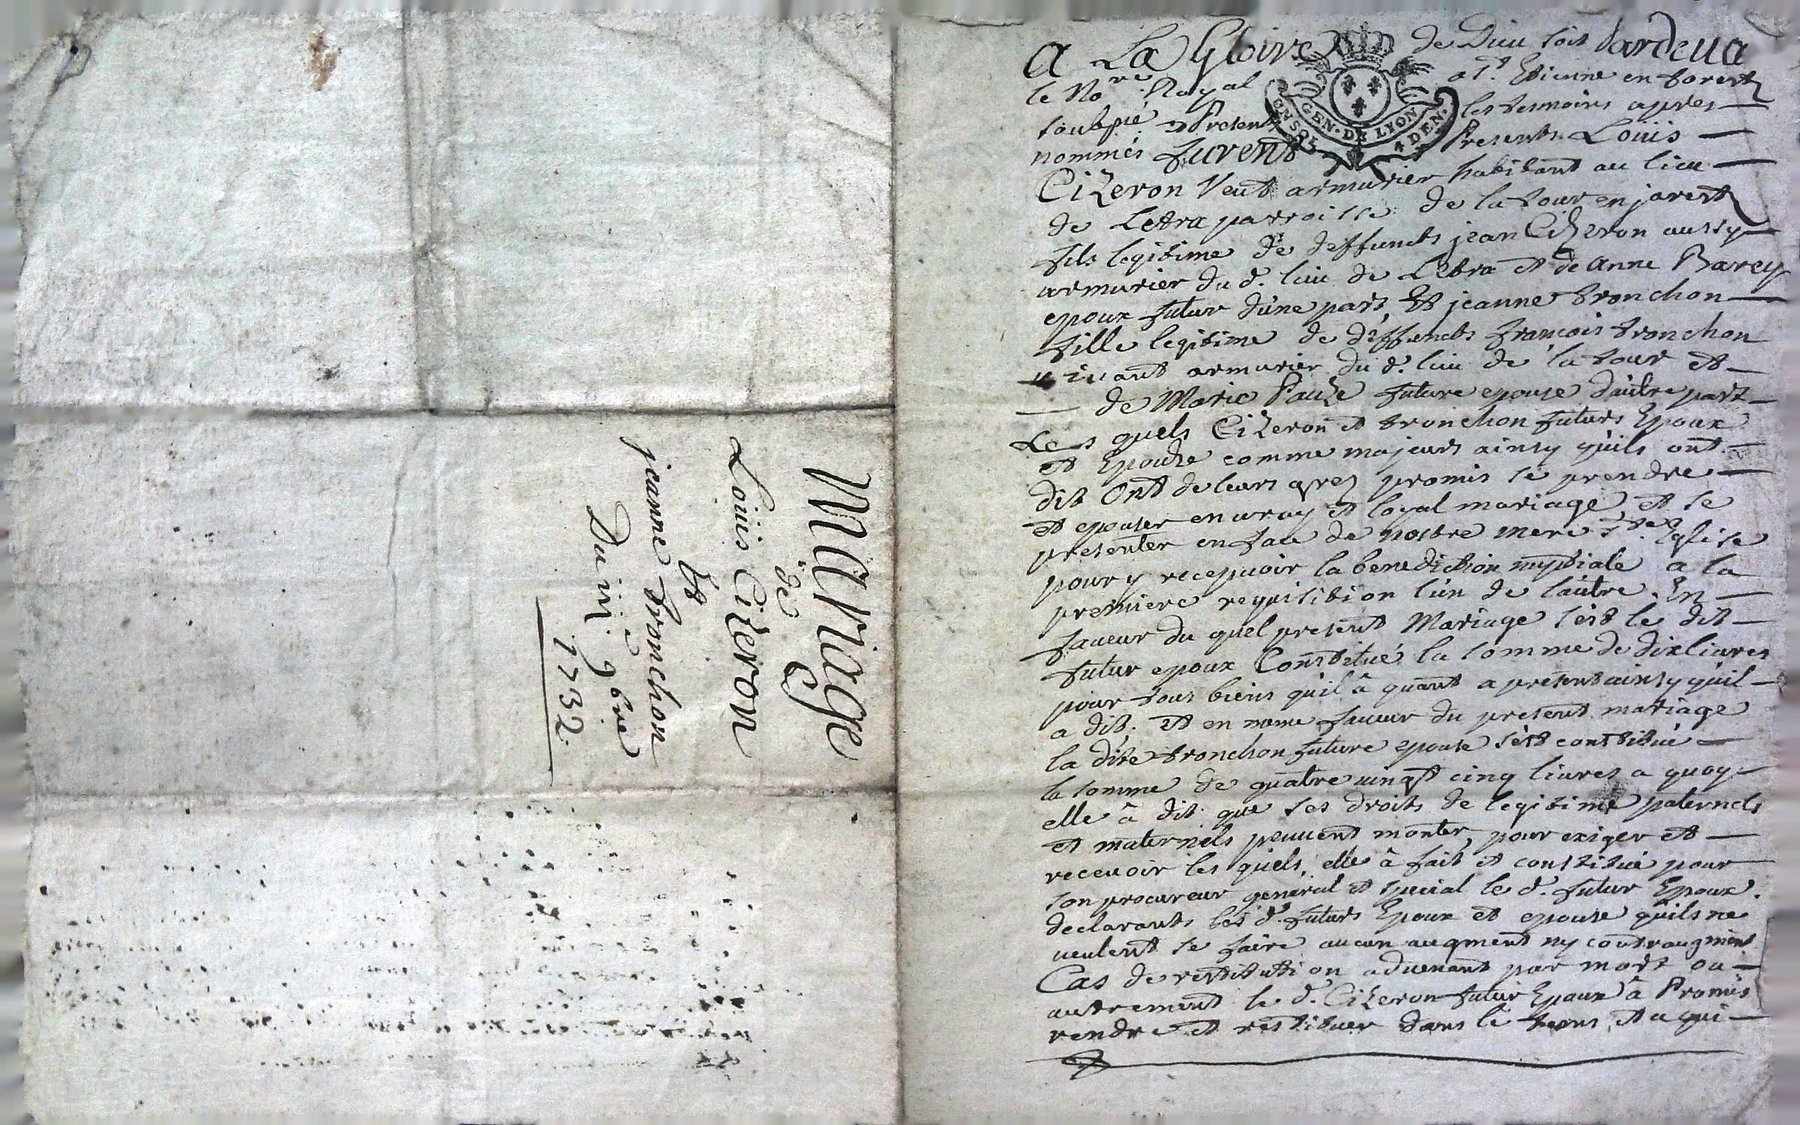 Mariage
des
Louis Cizeron
et
jeanne fronchon
Du iiij 9bre
1732
A La Gloire de Dieu soit Pardeva
le Nore Royal a St Etienne en forest
soubsné et Present les tesmoins apres
nommés furent Presents Louis
Cizeron Veuf armurier habitant au lieu
de Letra parroisse de la tour en jarest
fils legitime de deffuncts jean Cizeron aussy
armurier du d. lieu de Letra et de Anne Barey
epoux futur d'une part Et jeanne fronchon
fille legitime de deffuncts francois fronchon
vivant armurier du d. lieu de la tour et
de Marie Pauze future epouse d'autre part
Les quels Cizeron et fronchon futurs Epoux
et Epouze comme majeurs ainsy quils ont
dit Ont de leurs grez promis se prendre
et epouser en vray et loyal mariage et se
presenter en face de nostre mere Ste Eglise
pour y recepvoir la benediction nuptiale a la
premiere requisition l'un de l'autre. En
faveur du quel present Mariage s'est le dit
futur epoux Constitué la somme de dix livres
pour tous biens qu'il â quant a present ainsy qu'il
a dit. Et en meme faveur du present mariage
la dite fronchon future epouse s'est constitué
la somme de quatre vingt cinq livres a quoy
elle â dit que ses droits de legitime paternels
et maternels peuvent monter pour exiger et
recevoir les quels elle â fait et constitué pour
son procureur general et special le d. futur Epoux
declarants les d. futurs Epoux et epouse quils ne
veulent se faire aucun augment ny contraugment
Cas de restitution advenant par mort ou
autrement le d. Cizeron futur Epoux â Promis
rendre et restituer dans le tems et a qui
GEN. DE LYON
4 DEN.